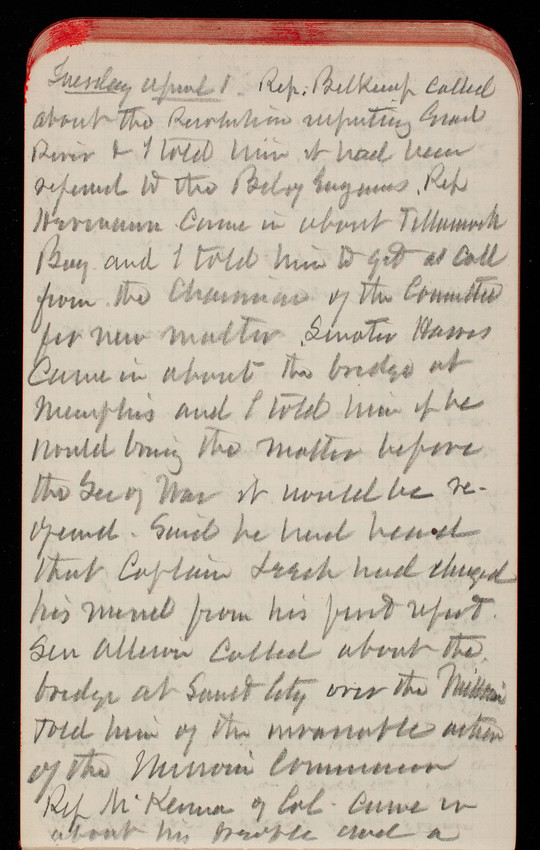 Tuesday April 1. Rep. Belknap called
about the Resolution reporting Grand
River & I told him it had been
refered to the Bd of Engineers. Rep
Hermann came in about Tillamook
Bay and I told him to get a call
from the Chairman of the Committee
for new matter. Senator Harris
Came in about the bridge at
Memphis and I told him if he
would bring the matter before
the Sec of War it would be re-
opened. Said he had heard
that Captain Leach had changed
his mind from his first report.
Sen Allison Called about the
bridge at Sioux City over the Missouri
Told him of the action
of the Missouri Commission
Rep McKenna of Cal. came in
about his trouble and a